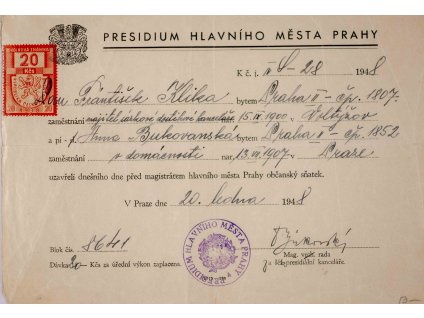 KOLKOVÁ ZNÁMKA
20
Kčs
PRESIDIUM HLAVNÍHO MĚSTA PRAHY
K č. j. II S-28 1948
Pan František Klika bytem Praha II - čp. 1807.
zaměstnání majitel úkl. 15. IV. 1900. Voltýřov
a pí - Anna Bukovanská bytem Praha II - čp. 1852
zaměstnání v domácnosti nar. 13. VI. 1907. Praze
uzavřeli dnešního dne před magistrátem hlavního města Prahy občanský sňatek.
V Praze dne 20. ledna 1948
Blok čís. 8641
Dávka 20 Kčs za úřední výkon zaplacena.
PRESIDIUM HLAVNÍHO MĚSTA PRAHY
Mag. vrch. rada
presidiální kanceláře.